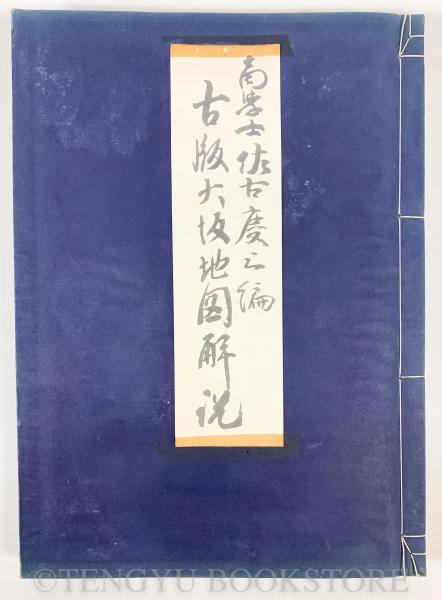 商学士佐古慶三編
古版大坂地図解説
©TENGYU BOOKSTORE